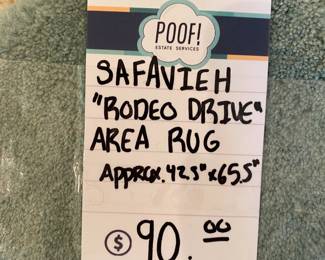 POOF!
ESTATE SERVICES
SAFAVIEH
"RODEO DRIVE"
AREA RUG
APPROX. 42.5" x 65.5"
$ 90.00